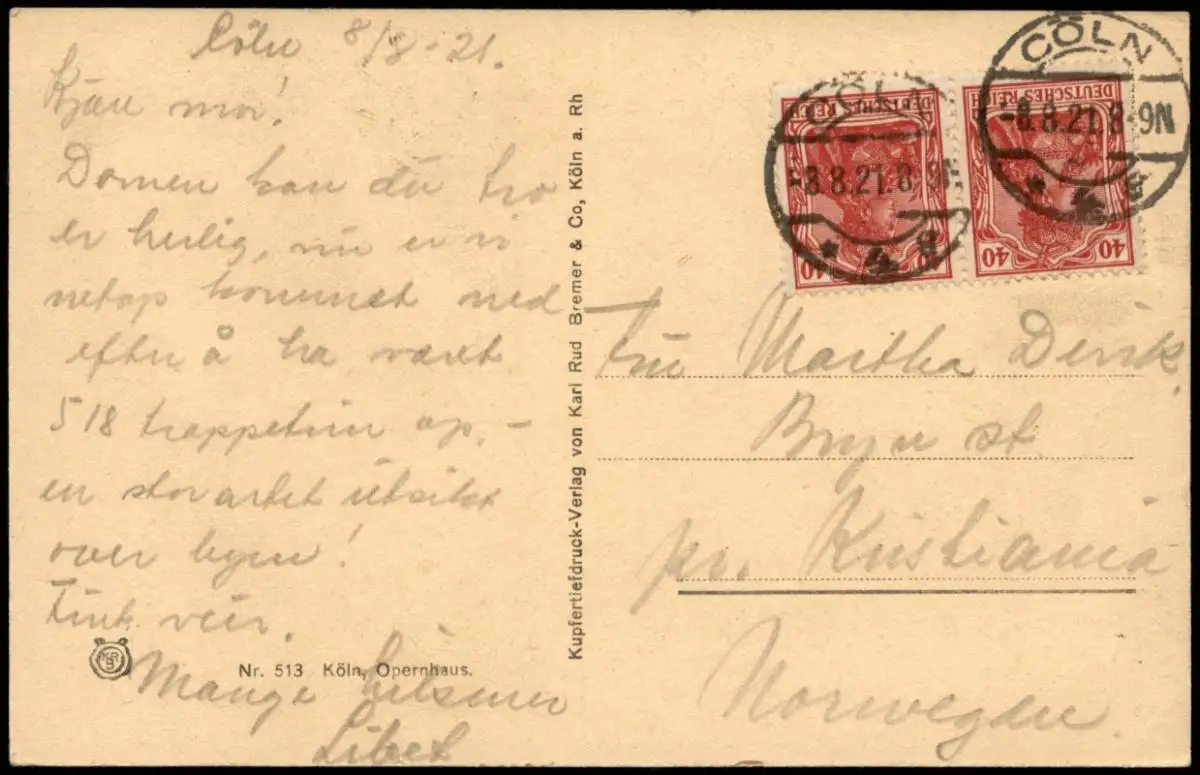 Cöln 8/8-21.
Kjære mor!
Domen kan du tro
er heilig, nu er vi
netop kommet ned
efter å ha været
518 trappetrin op, -
en storartet utsikt
over byen!
Fint veir.
Mange hilsener
Libet
Nr. 513 Köln, Opernhaus.
Kupfertiefdruck-Verlag von Karl Rud Bremer & Co, Köln a. Rh
CÖLN
-8.8.21.8-9N
* 4 *
CÖLN
-8.8.21.8-9N
* 4
DEUTSCHES REICH
40 40
DEUTSCHES REICH
40 40
Fru Martha Dirik
Bryn st.
pr. Kristiania
Norwegen.